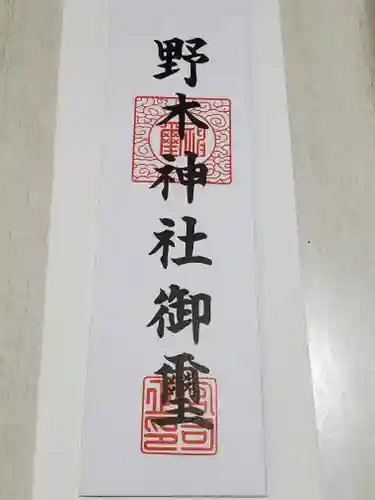 野木神社御璽